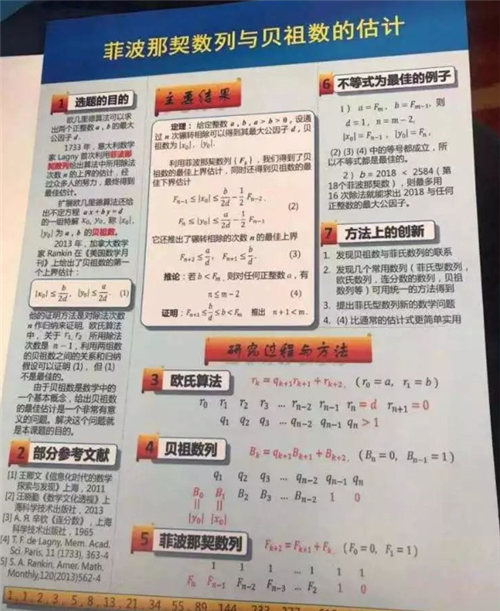 菲波那契数列与贝祖数的估计
1 选题的目的
欧几里德算法可以求
出两个正整数 a, b 的最大
公因子 d。
1733 年，意大利数学
家 Lagny 首次利用菲波那
契数列给出算法中所用除法
次数 n 的上界的估计，经
过众多人的努力，最终得到
最佳估计。
扩展欧几里德算法还给
出不定方程 ax+by=d
的一组特解 x₀, y₀，称 |x₀|,
|y₀| 为 a, b 的贝祖数。
2013 年，加拿大数学
家 Rankin 在《美国数学月
刊》上给出了贝祖数的第一
个上界估计：
|x₀| ≤ b/2d, |y₀| ≤ a/2d (1)
他的证明方法是对除法次数
n 作归纳来证明，欧氏算法
中，关于 r₁, r₂ 所用除法
次数是 n − 1，利用两组数
的贝祖数之间的关系和归纳
假设可以证明 (1)，但 (1)
不是最佳的。
由于贝祖数是数学中的
一个基本概念，给出贝祖数
的最佳估计是一个非常有意
义的问题。解决这个问题就
是本课题的目的。
2 部分参考文献
[1] 王卿文《信息化时代的数学
探索与发现》上海，2011
[2] 汪晓勤《数学文化透视》上
海科学技术出版社，2013
[3] A. Я. 辛钦《连分数》，上海
科学技术出版社，1965
[4] T. F. de Lagny, Mem. Acad.
Sci. Paris, 11 (1733), 363-4
[5] S. A. Rankin, Amer. Math.
Monthly, 120(2013)562-4
主要结果
定理：给定整数 a, b, a > b > 0，设通
过 n 次辗转相除可以得到其最大公因子 d，贝
祖数为 |x₀|, |y₀|。
利用菲波那契数列 {Fₙ}，我们得到了贝
祖数的最佳上界估计，同时还得到贝祖数的最
佳下界估计
Fₙ₋₁ ≤ |x₀| ≤ b/2d − 1/2 Fₙ₋₂,
(2)
Fₙ ≤ |y₀| ≤ a/2d − 1/2 Fₙ₋₁.
它还推出了辗转相除的次数 n 的最佳上界
Fₙ₊₂ ≤ a/d, Fₙ₊₁ ≤ b/d. (3)
推论：若 b < Fₘ，则对任何正整数 a，有
n ≤ m − 2 (4)
证明：Fₙ₊₁ ≤ b/d ≤ b < Fₘ 推出 n + 1 < m.
研究过程与方法
3 欧氏算法 rₖ = qₖ₊₁rₖ₊₁ + rₖ₊₂, (r₀ = a, r₁ = b)
r₀ r₁ r₂ r₃ … rₙ₋₂ rₙ₋₁ rₙ = d rₙ₊₁ = 0
q₁ q₂ q₃ … qₙ₋₂ qₙ₋₁ qₙ > 1
4 贝祖数列 Bₖ = qₖ₊₁Bₖ₊₁ + Bₖ₊₂, (Bₙ = 0, Bₙ₋₁ = 1)
q₁ q₂ q₃ … qₙ₋₂ qₙ₋₁ qₙ
B₀ B₁ B₂ B₃ … Bₙ₋₂ 1 0
|| ||
|y₀| |x₀|
5 菲波那契数列 Fₖ₊₂ = Fₖ₊₁ + Fₖ, (F₀ = 0, F₁ = 1)
1 1 1 … 1 1 1
Fₙ Fₙ₋₁ Fₙ₋₂ Fₙ₋₃ … F₂ 1 0
6 不等式为最佳的例子
1) a = Fₘ, b = Fₘ₋₁, 则
d = 1, n = m − 2,
|x₀| = Fₙ₋₁, |y₀| = Fₙ.
(2) (3) (4) 中的等号都成立，所
以不等式都是最佳的。
2) b = 2018 < 2584 (第
18个菲波那契数)，则最多用
16 次除法就能求出 2018 与任何
正整数的最大公因子。
7 方法上的创新
1. 发现贝祖数与菲氏数列的联系
2. 发现几个常用数列（菲氏型数列，
欧氏数列，连分数的数列，贝祖
数列等）可用统一的方法得到
3. 提出菲氏型数列新的数学问题
4. (4) 比通常的估计式更简单实用
1, 1, 2, 3, 5, 8, 13, 21, 34, 55, 89, 144, 233, 377